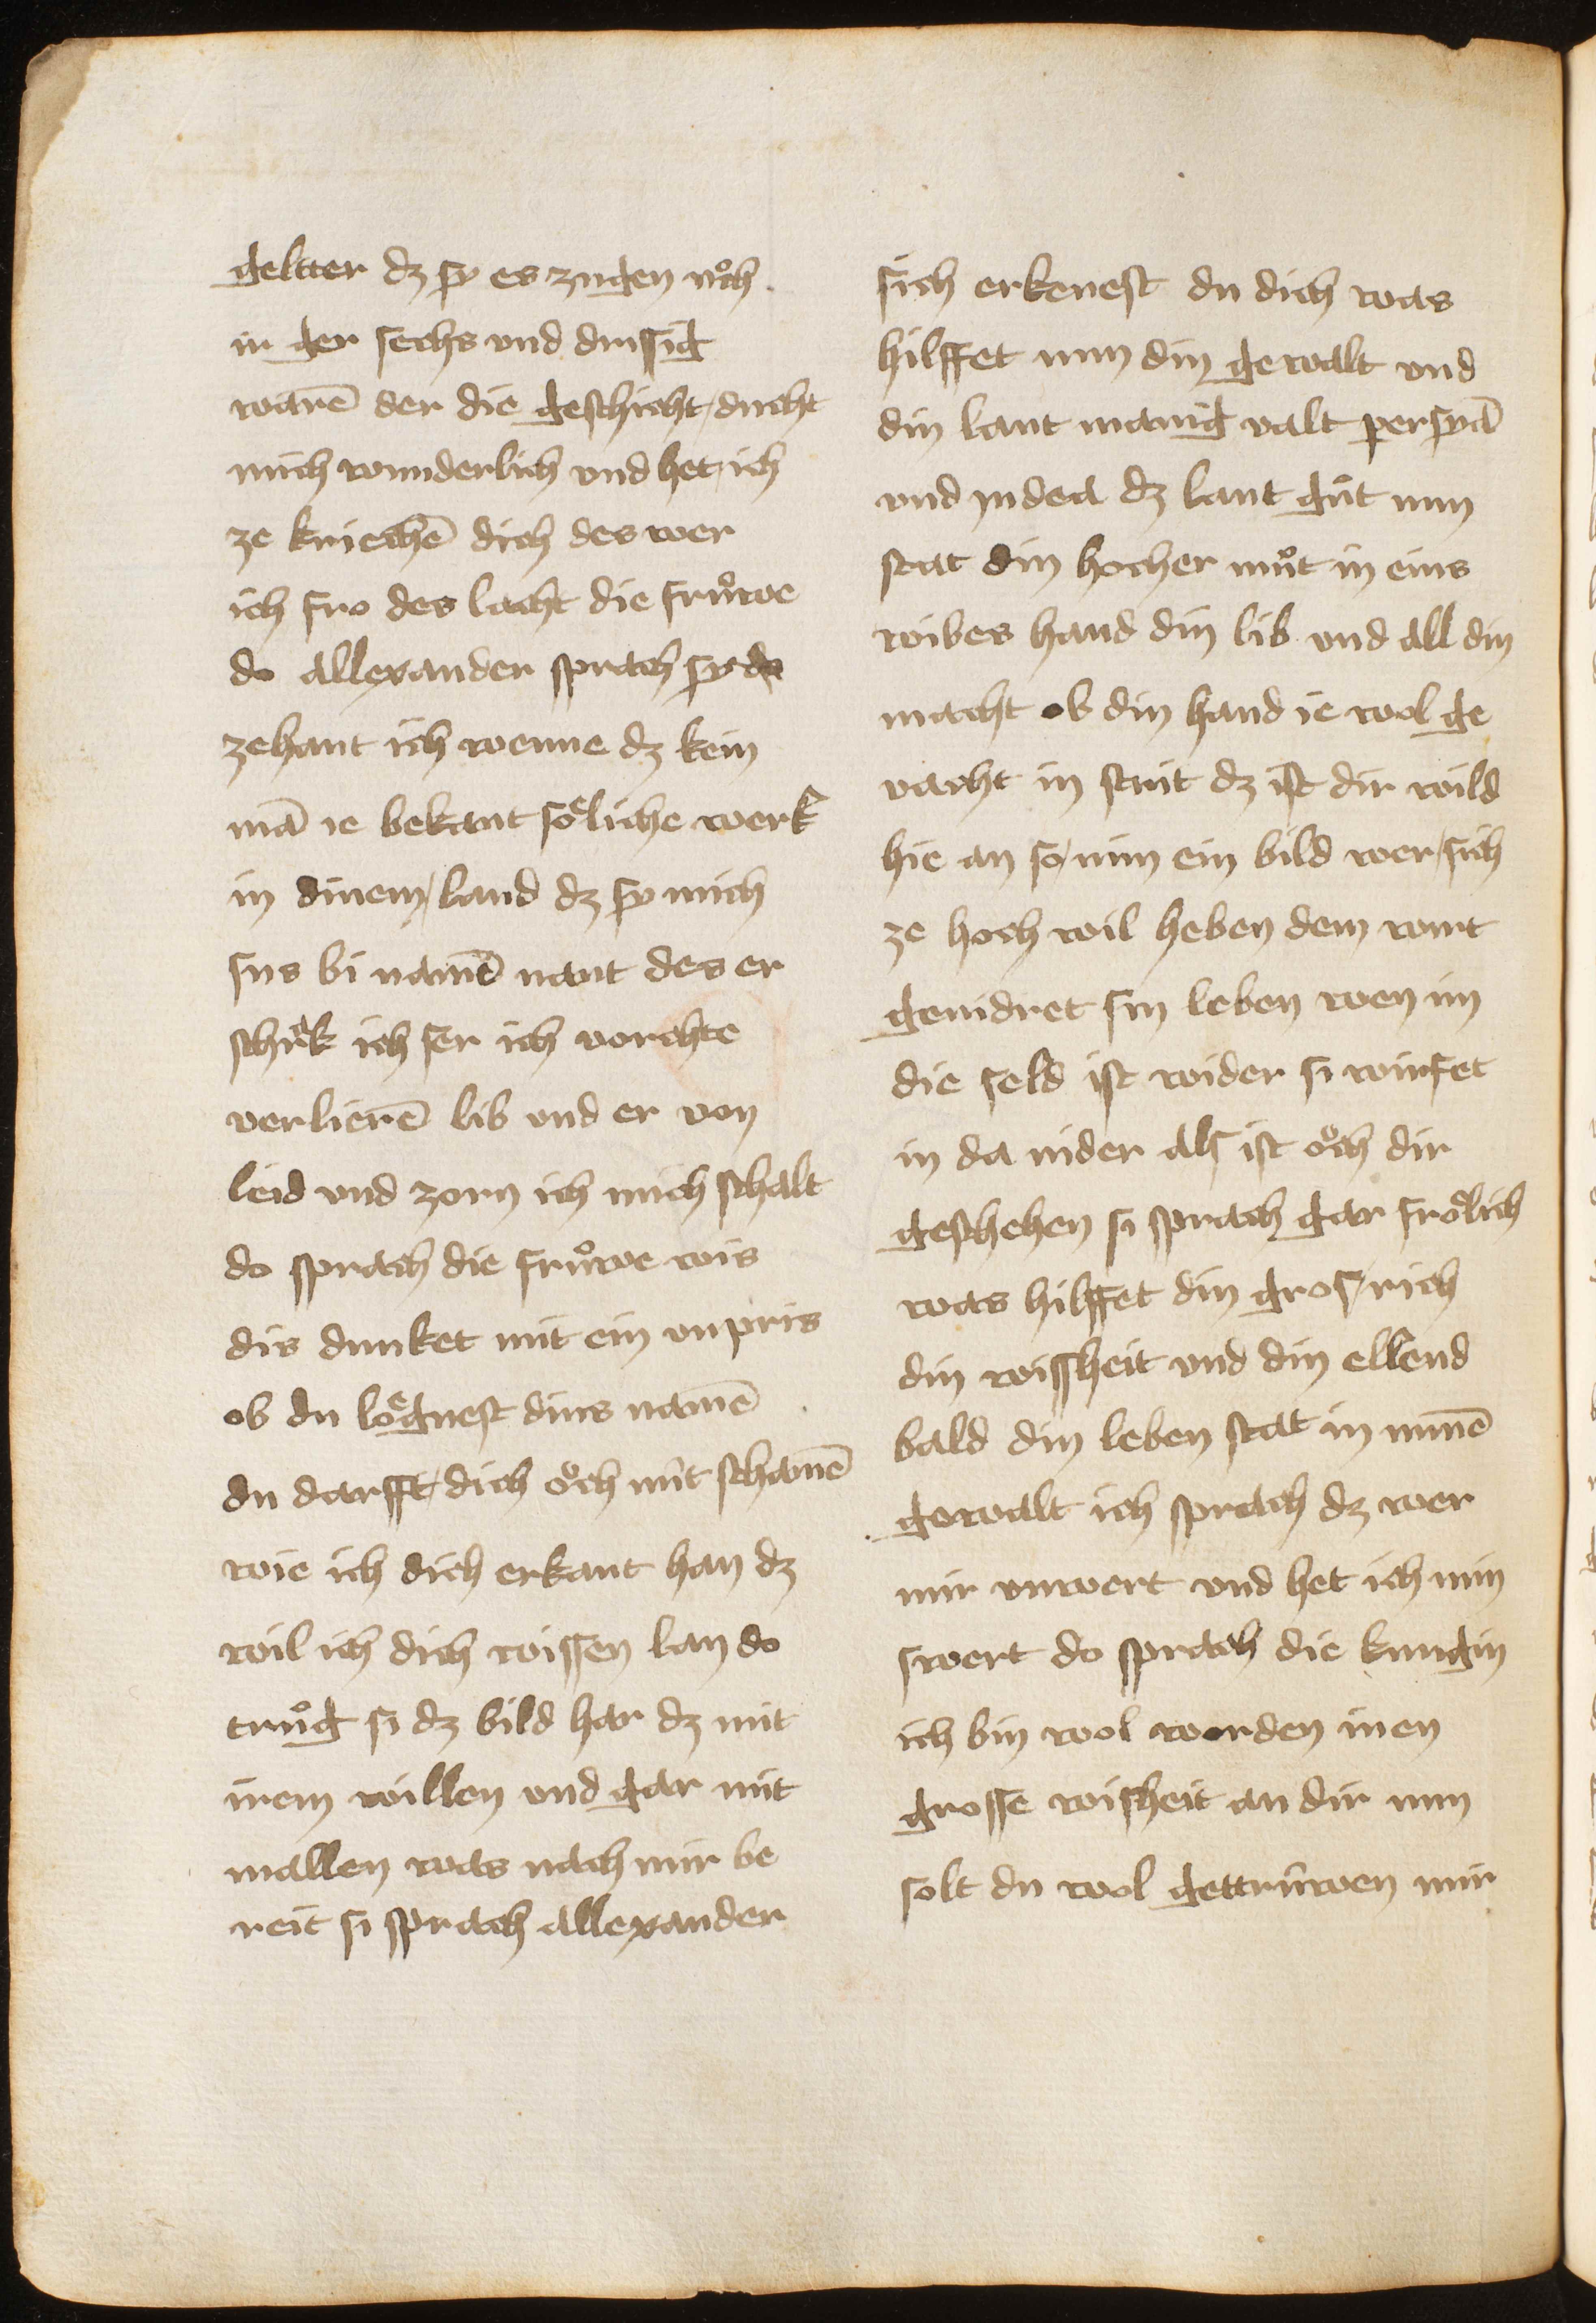 geltter dz sy es zugen noͮch
ir ger sechs vnd drissig
warē der die geschicht ducht
mich wunderlich vnd het ich
ze kriechē dich des wer
ich fro des lacht die fruͦwe
do allexander sprach sy do
zehant ich wenne dz kein
mā ie bekant soͤliche werk
in dinem land dz sy mich
sus bi namē nant des er
schrak ich ser ich vorchte
verlierē lib vnd er von
leid vnd zorn ich mich schalt
do sprach die fruͦwe wis
dis dunket mit ein vnpris
ob du loͤgnest dins namē
du darfft dich oͮch nit schamē
wie ich dich erkant han dz
wil ich dich wissen lan do
truͦg si dz bild har dz mit
irem willen vnd gar mit
mallen was nach mir be
reit si sprach allexander
sich erkenest du dich was
hilffet nun din gewalt vnd
din lant manig valt persyā
vnd yndea dz lant guͦt nun
stat din hocher muͦt in eins
wibes hand din lib vnd all din
macht ob din hand ie wol ge
vacht in strit dz ist dir wild
hie an so nim ein bild wer sich
ze hoch wil heben dem wirt
genidret sin leben wen im
die seld ist wider si wirfet
in da nider als ist oͮch dir
geschehen si sprach gar froͤlich
was hilffet din gros rich
din wissheit vnd din ellend
bald din leben stat in minē
gewalt ich sprach dz wer
mir vnwert vnd het ich min
swert do sprach die kungin
ich bin wol worden inen
grosse wisheit an dir nun
solt du wol gettrúwen mir